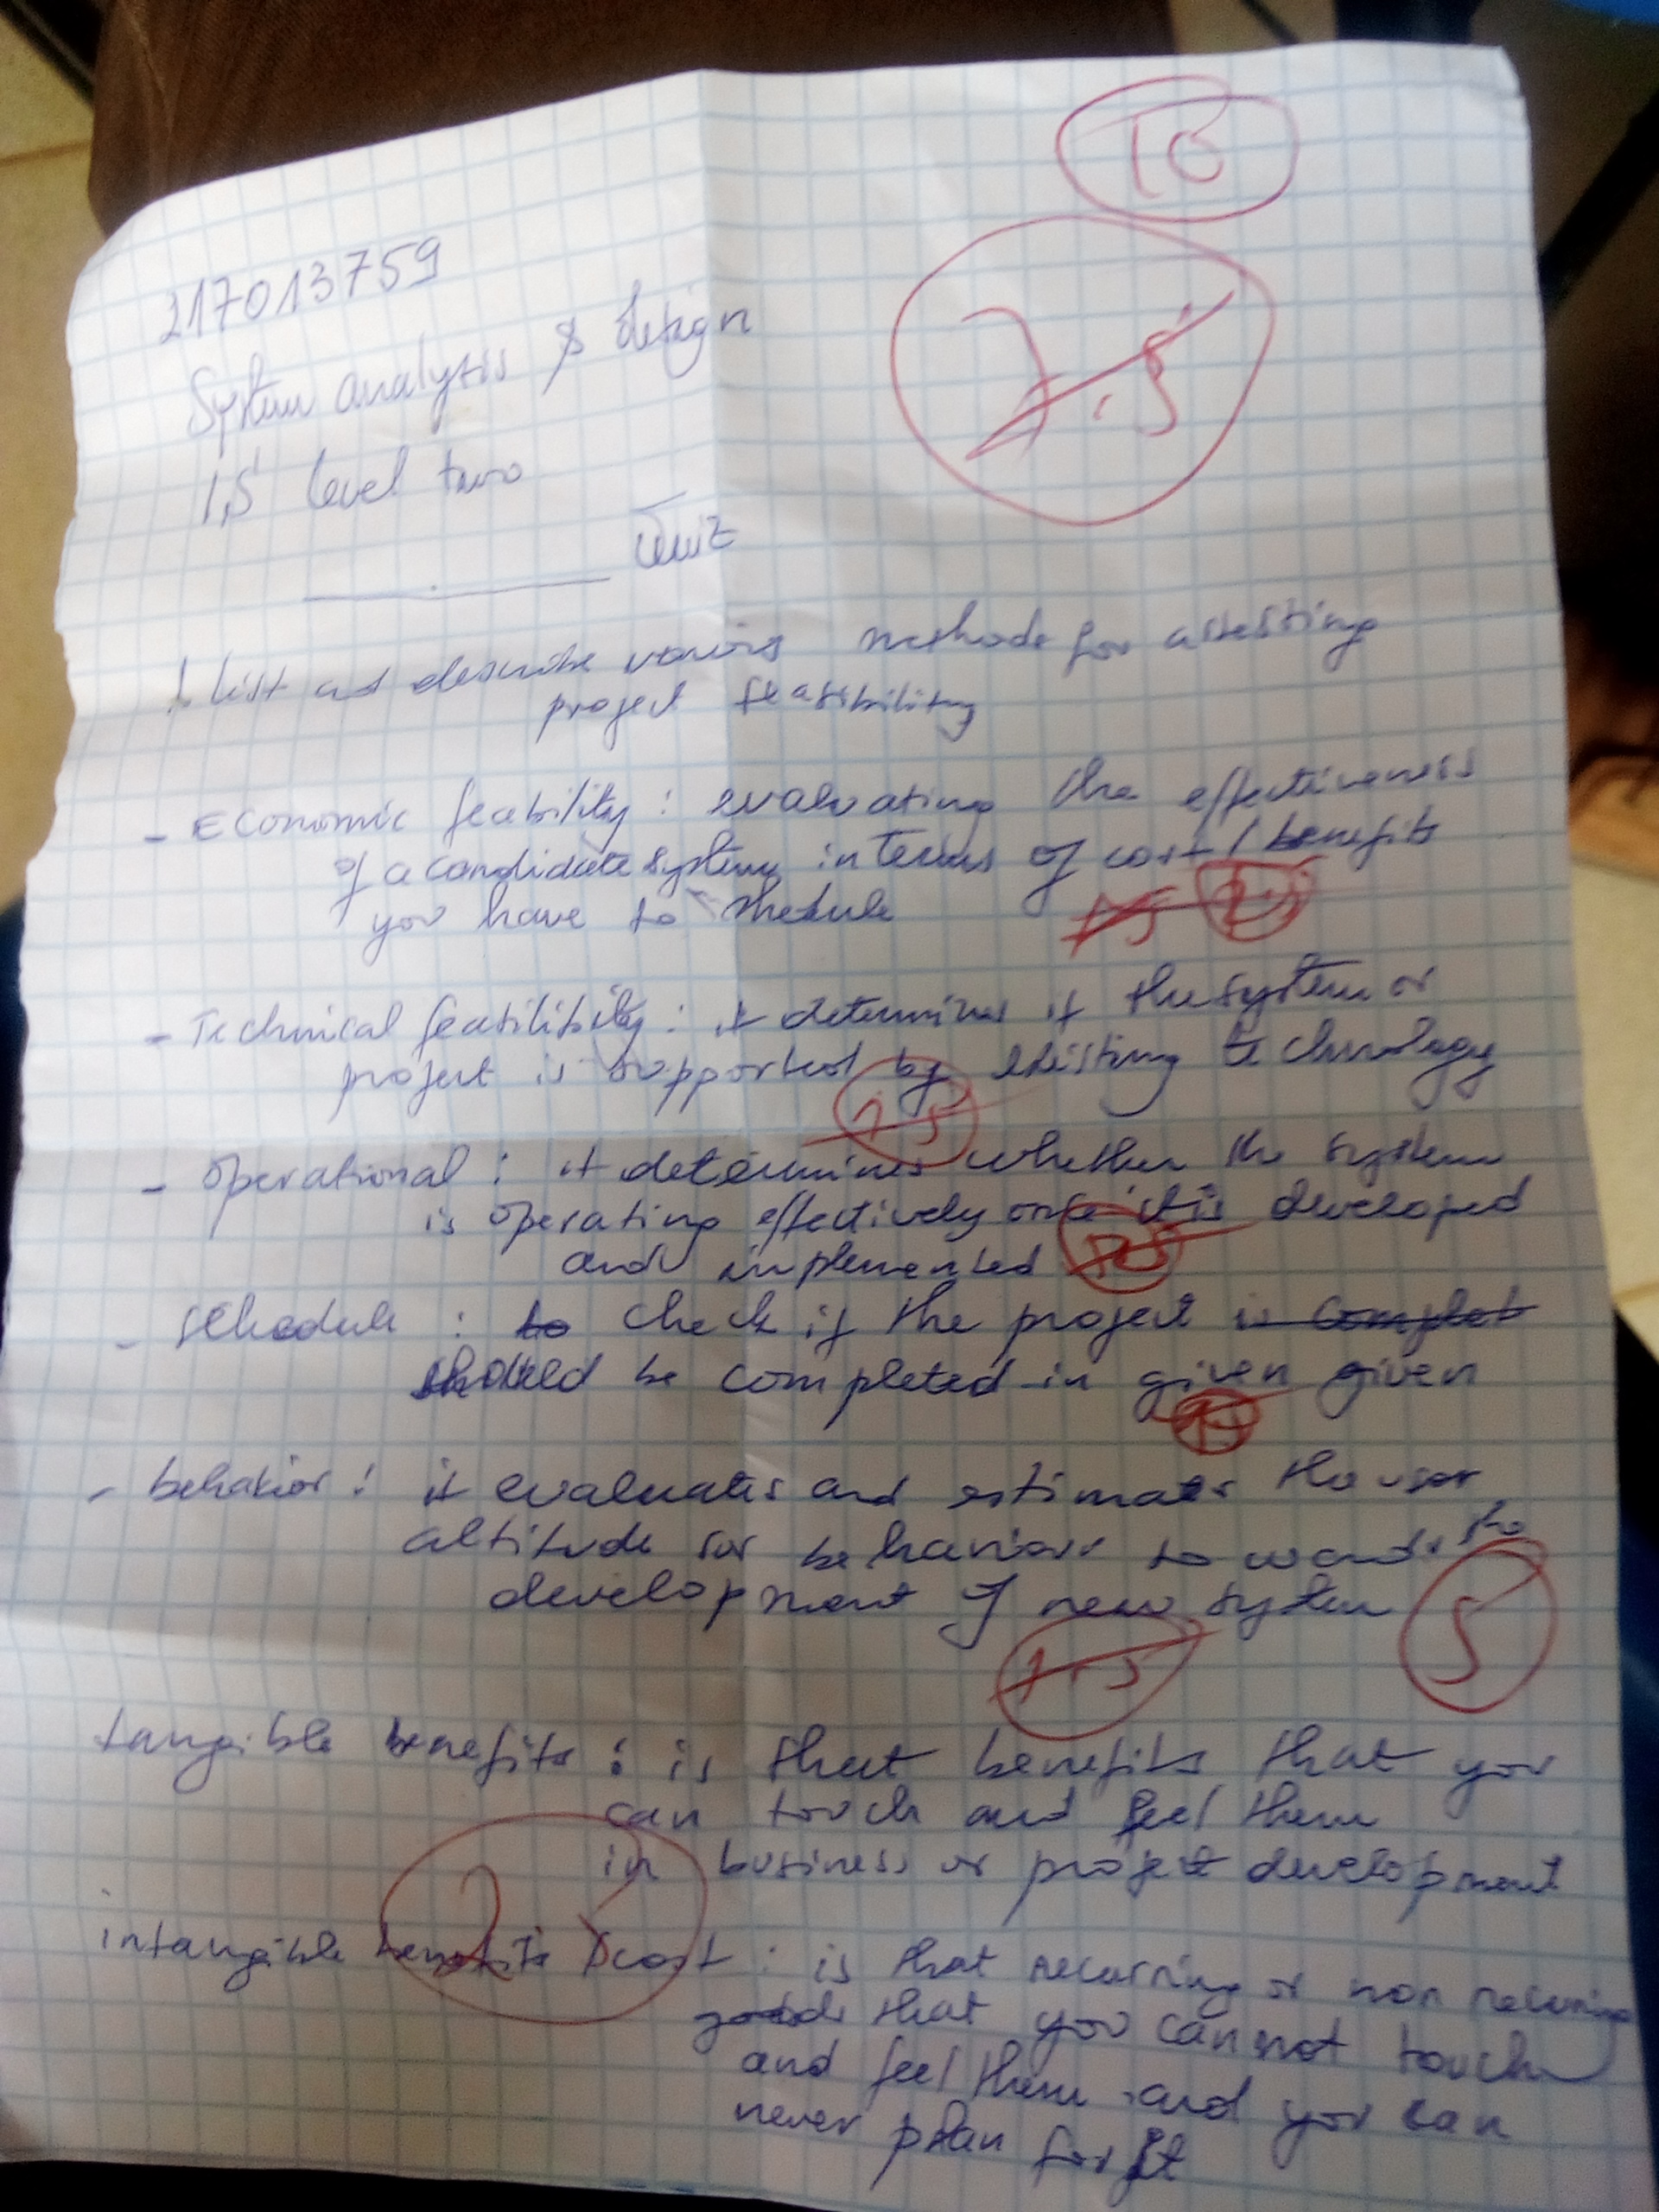 10
7.5
217013759
System analysis & design
I,S level two
Quiz
1 List and describe varioius methods for assessing
project feasibility
- Economic feability : evaluating the effectiveness
of a candidate system in terms of cost / benefits
you have to shedule
- Technical feasilibility : it determines if the system or
project is supported by existing technology
- operational : it determines whether the system
is operating effectively once it is developed
and implemented
- schedule : to check if the project is complet
should be completed in given given
- behavior : it evaluates and estimates the user
altitude or behaviors towards the
development of new system
5
1.5
tangible benefits : is that benefits that you
can touch and feel them
in business or project development
2
intangible benefits cost : is that recurring or non recuring
goods that you cannot touch
and feel them and you can
never plan for it